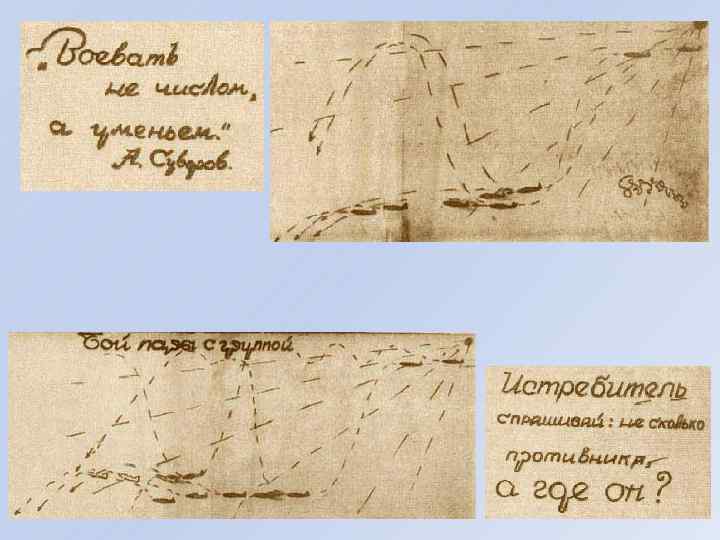 „Воевать
не числом,
а уменьем."
А. Суворов.
Бой пары с группой
Истребитель
спрашивай: не сколько
противника,
а где он?